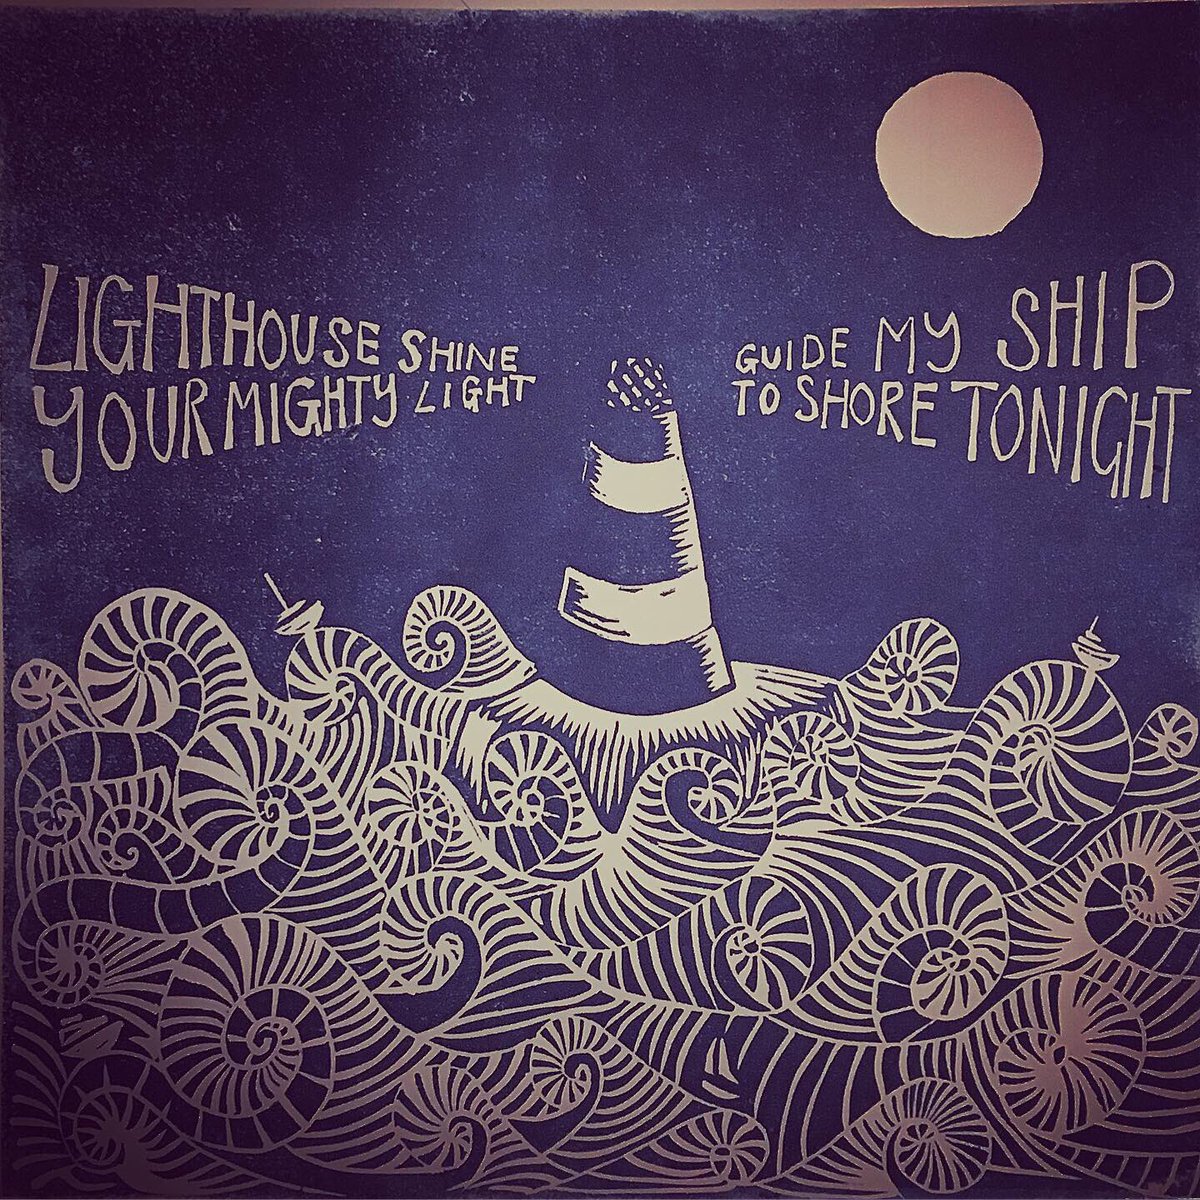 LIGHTHOUSE SHINE
YOUR MIGHTY LIGHT
GUIDE MY SHIP
TO SHORE TONIGHT